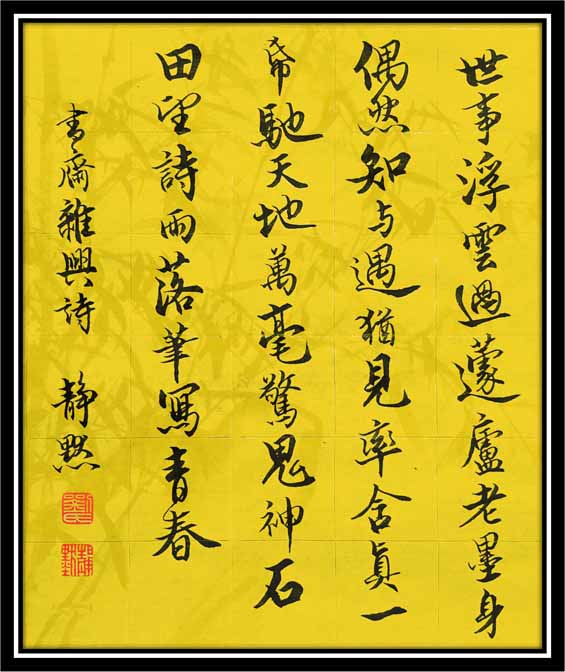 世事浮雲過蘧廬老墨身
偶然知与遇猶見率含真一
帋馳天地萬毫驚鬼神石
田望詩雨落筆寫青春
書齋雜興詩 静黙